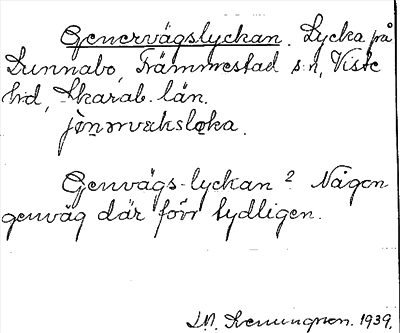 Genervägslyckan. Lycka på
Sunnabo, Främmestad s:n, Viste
hd, Skarab. län.
jènərvæksløka.
Genvägs-lyckan? Någon
genväg där förr tydligen.
1939.